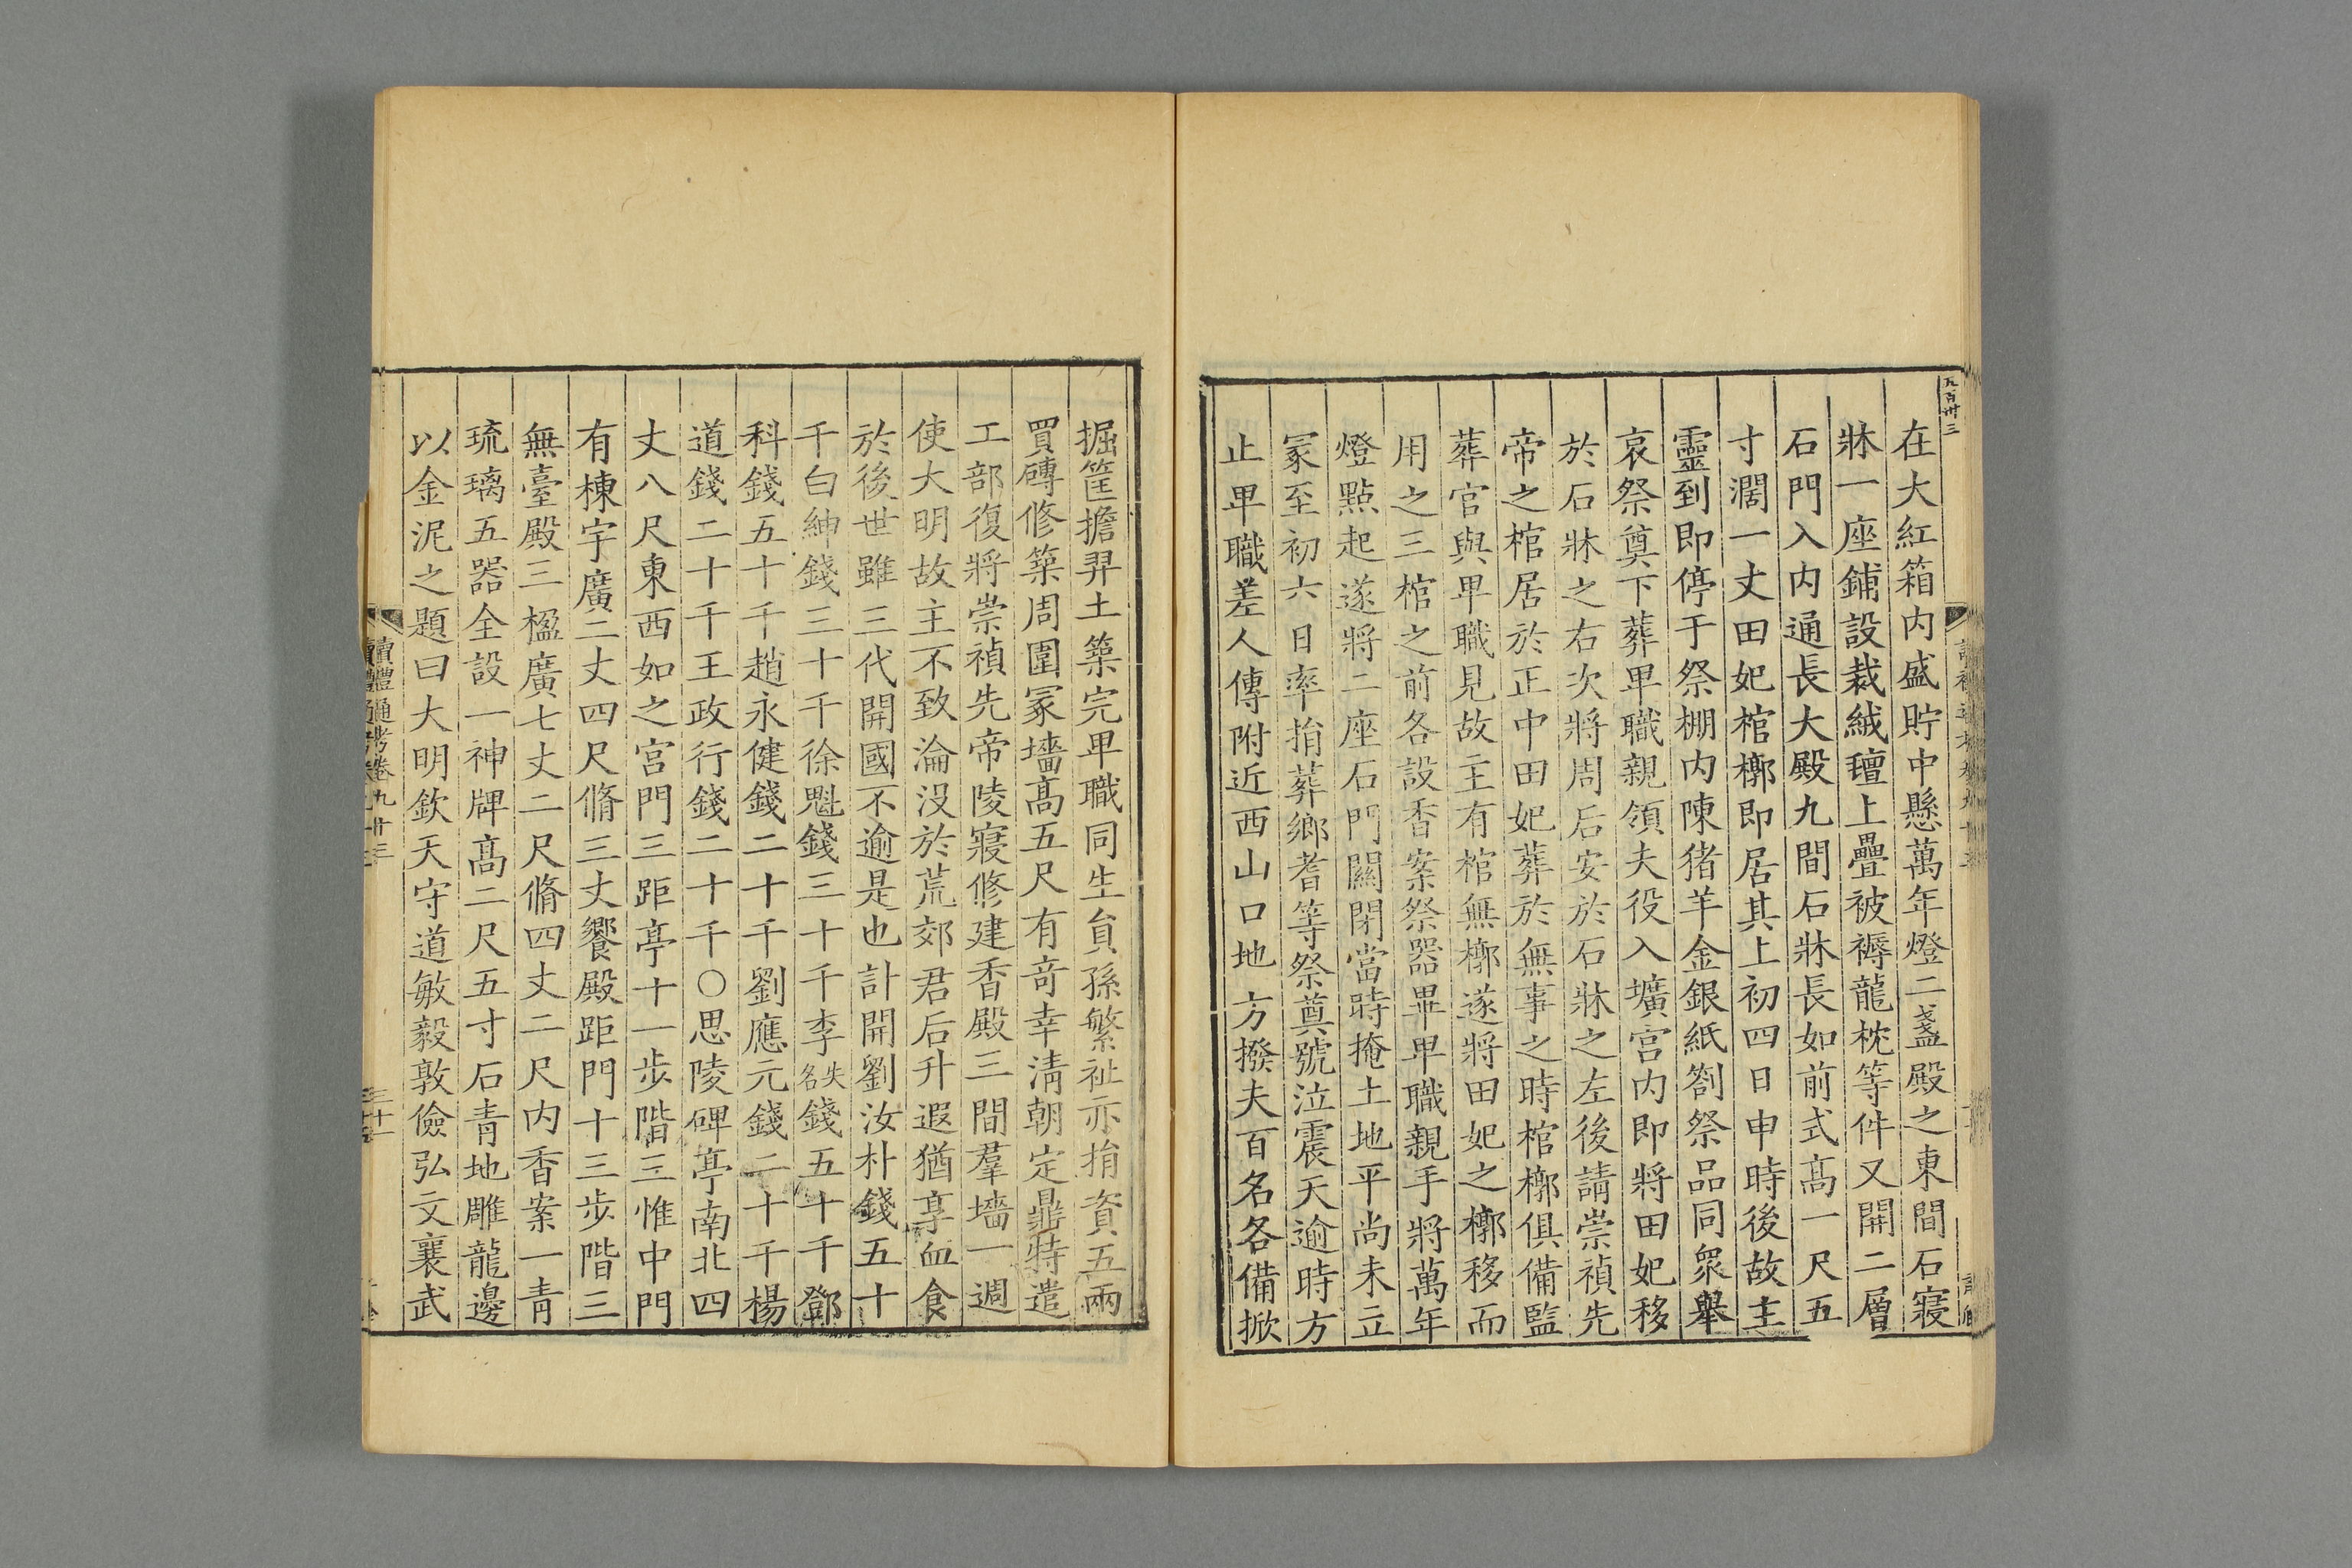 在大紅箱内盛貯中懸萬年燈二盞殿之東間石寢
牀一座鋪設裁絨氊上疊被褥龍枕等件又開二層
石門入内通長大殿九間石牀長如前式髙一尺五
寸濶一丈田妃棺槨即居其上初四日申時後故主
靈到即停于祭棚内陳猪羊金銀紙劄祭品同衆舉
哀祭奠下葬卑職親領夫役入壙宫内即將田妃移
於石牀之右次將周后安於石牀之左後請崇禎先
帝之棺居於正中田妃葬於無事之時棺槨俱備監
葬官與卑職見故主有棺無槨遂將田妃之槨移而
用之三棺之前各設香案祭器畢卑職親手將萬年
燈點起遂將二座石門關閉當時掩土地平尚未立
冡至初六日率捐葬鄉耆等祭奠號泣震天逾時方
止卑職差人傳附近西山口地方撥夫百名各備掀
掘筐擔舁土築完卑職同生員孫繁祉亦捐資五兩
買磚修築周圍冡墻髙五尺有竒幸淸朝定鼎特遣
工部復將崇禎先帝陵寢修建香殿三間羣墻一週
使大明故主不致淪沒於荒郊君后升遐猶享血食
於後世雖三代開國不逾是也計開劉汝朴錢五十
千白紳錢三十千徐魁錢三十千李失名錢五十千鄧
科錢五十千趙永健錢二十千劉應元錢二十千楊
道錢二十千王政行錢二十千○思陵碑亭南北四
丈八尺東西如之宫門三距亭十一步階三惟中門
有棟宇廣二丈四尺脩三丈饗殿距門十三步階三
無臺殿三楹廣七丈二尺脩四丈二尺内香案一青
琉璃五器全設一神牌髙二尺五寸石青地雕龍邊
以金泥之題曰大明欽天守道敏毅敦儉弘文襄武
讀禮通考卷九十三
三十一